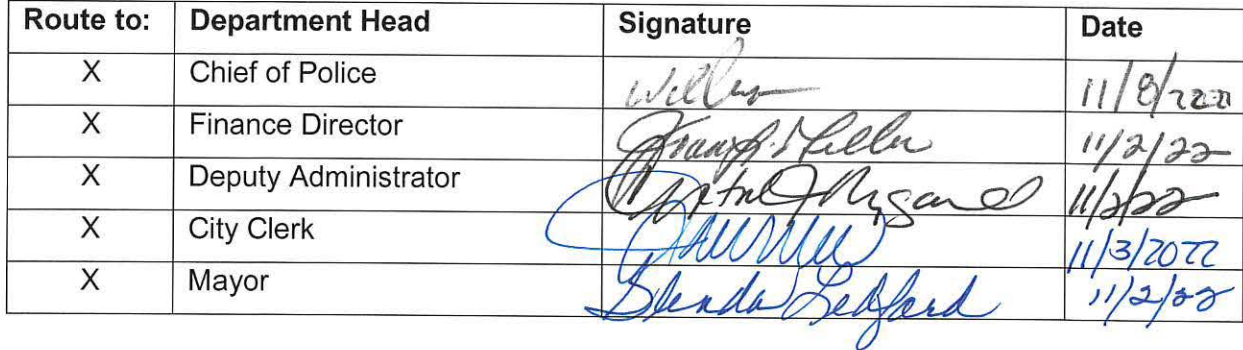 Route to: Department Head Signature Date
X Chief of Police 11/8/2022
X Finance Director 11/2/22
X Deputy Administrator 11/2/22
X City Clerk 11/3/2022
X Mayor Glenda Ledford 11/2/22